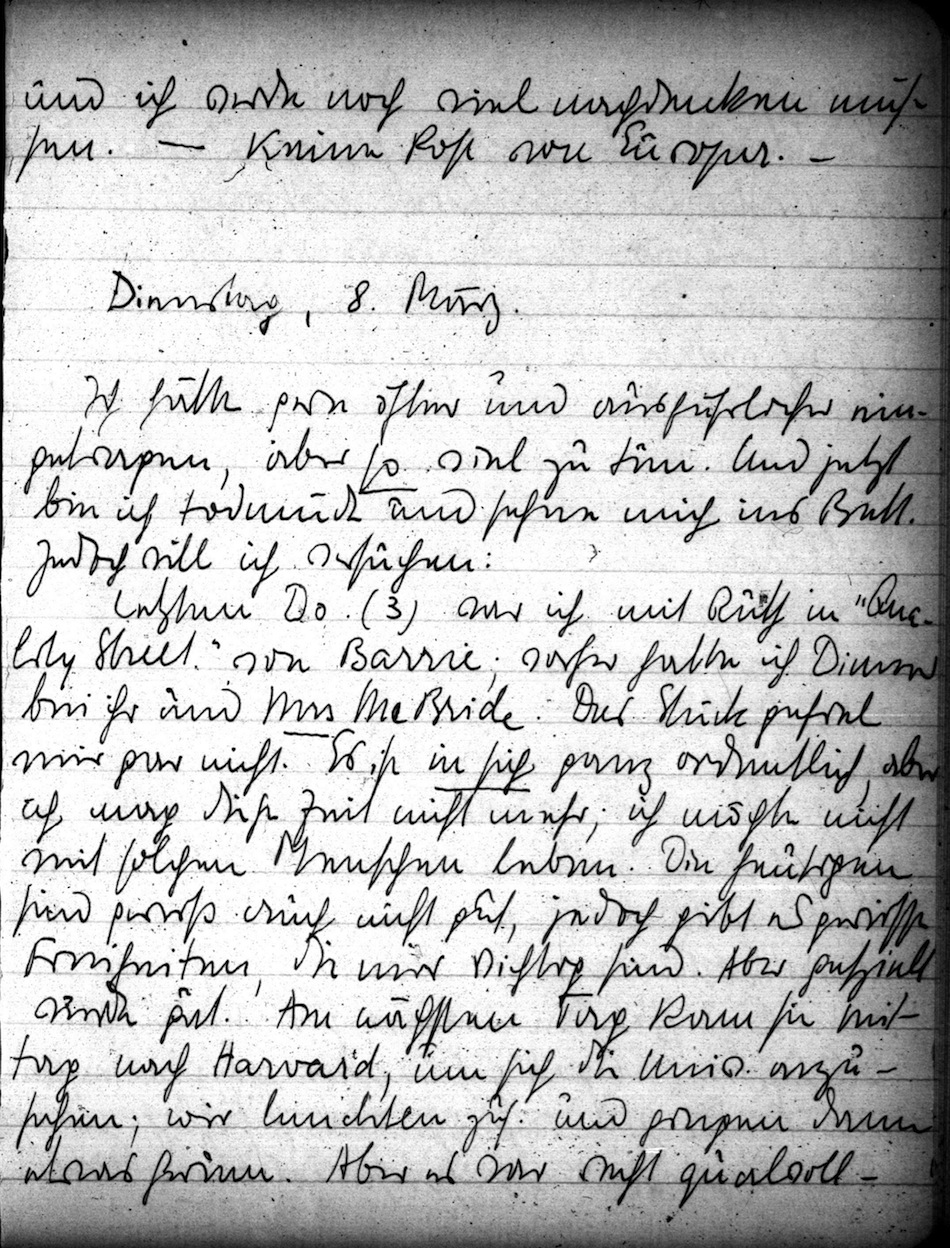 und ich werde noch viel nachdenken müs-
sen. — Keine Post von Europa. —
Dienstag, 8. März.
Ich hätte gern öfter und ausführlicher ein-
getragen, aber so viel zu tun. Und jetzt
bin ich todmüde und sehne mich ins Bett.
Jedoch will ich versuchen:
Letzten Do. (3) war ich mit Ruth in "Qua-
lity Street." von Barrie; vorher hatte ich Dinner
bei ihr und Mrs McBride. Das Stück gefiel
mir gar nicht. Es ist in sich ganz ordentlich, aber
ich mag diese Zeit nicht mehr; ich möchte nicht
mit solchen Menschen leben. Die heutigen
sind gewiß auch nicht gut, jedoch gibt es gewisse
Freiheiten, die mir wichtig sind. Aber gespielt
wurde gut. Am nächsten Tag kam sie mit-
tag nach Harvard, um sich die Univ. anzu-
sehen; wir lunchten zus. und gingen dann
etwas herum. Aber es war recht qualvoll —